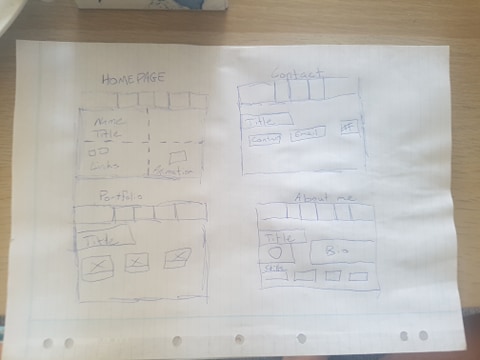 HOMEPAGE
Name
Title
Links
Animation
Contact
Title
Contact
Email
Portfolio
Title
About me
Title
Bio